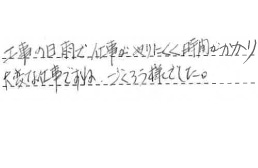 工事の日雨で仕事がやりにくく時間がかかり
大変な仕事ですね。ごくろう様でした。